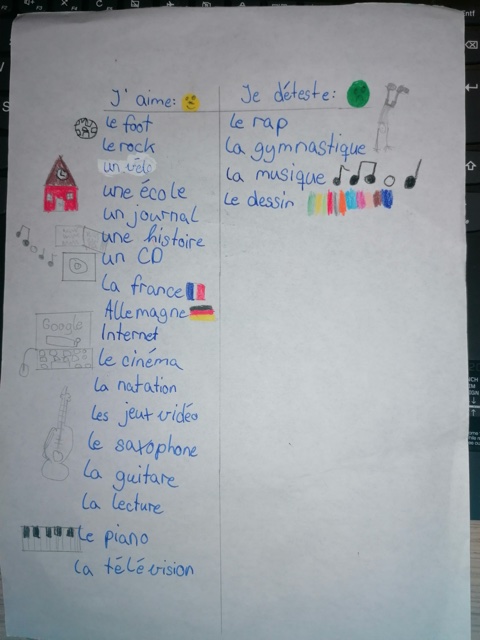 J'aime:
le foot
le rock
un vélo
une école
un journal
une histoire
un CD
La france
Allemagne
Internet
Le cinéma
la natation
les jeux vidéo
le saxophone
La guitare
La lecture
Le piano
La télévision
Google
Je déteste:
le rap
La gymnastique
La musique
Le dessin